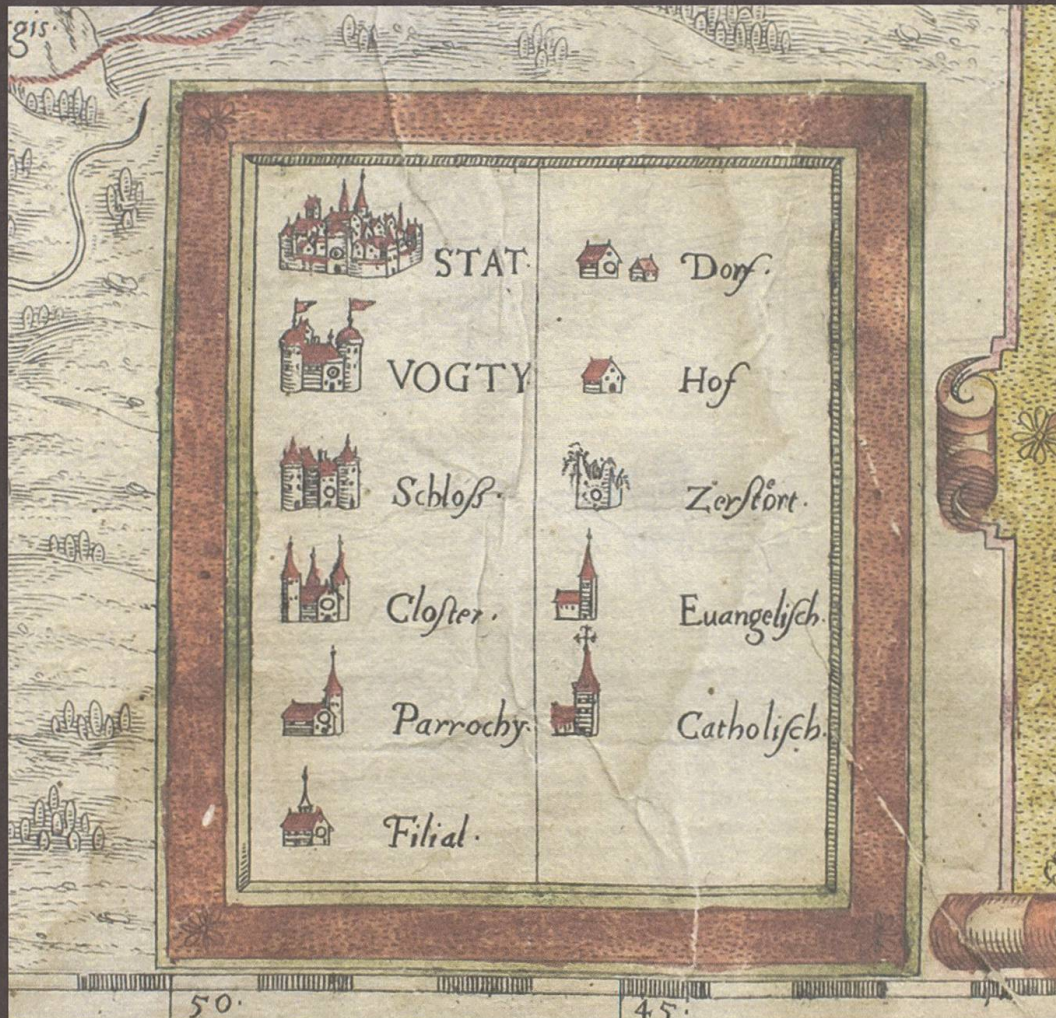 gis.
STAT.
VOGTY
Schloß.
Cloſter.
Parrochy.
Filial.
Dorf.
Hof
Zerſtört.
Euangeliſch.
Catholiſch.
50.
45.